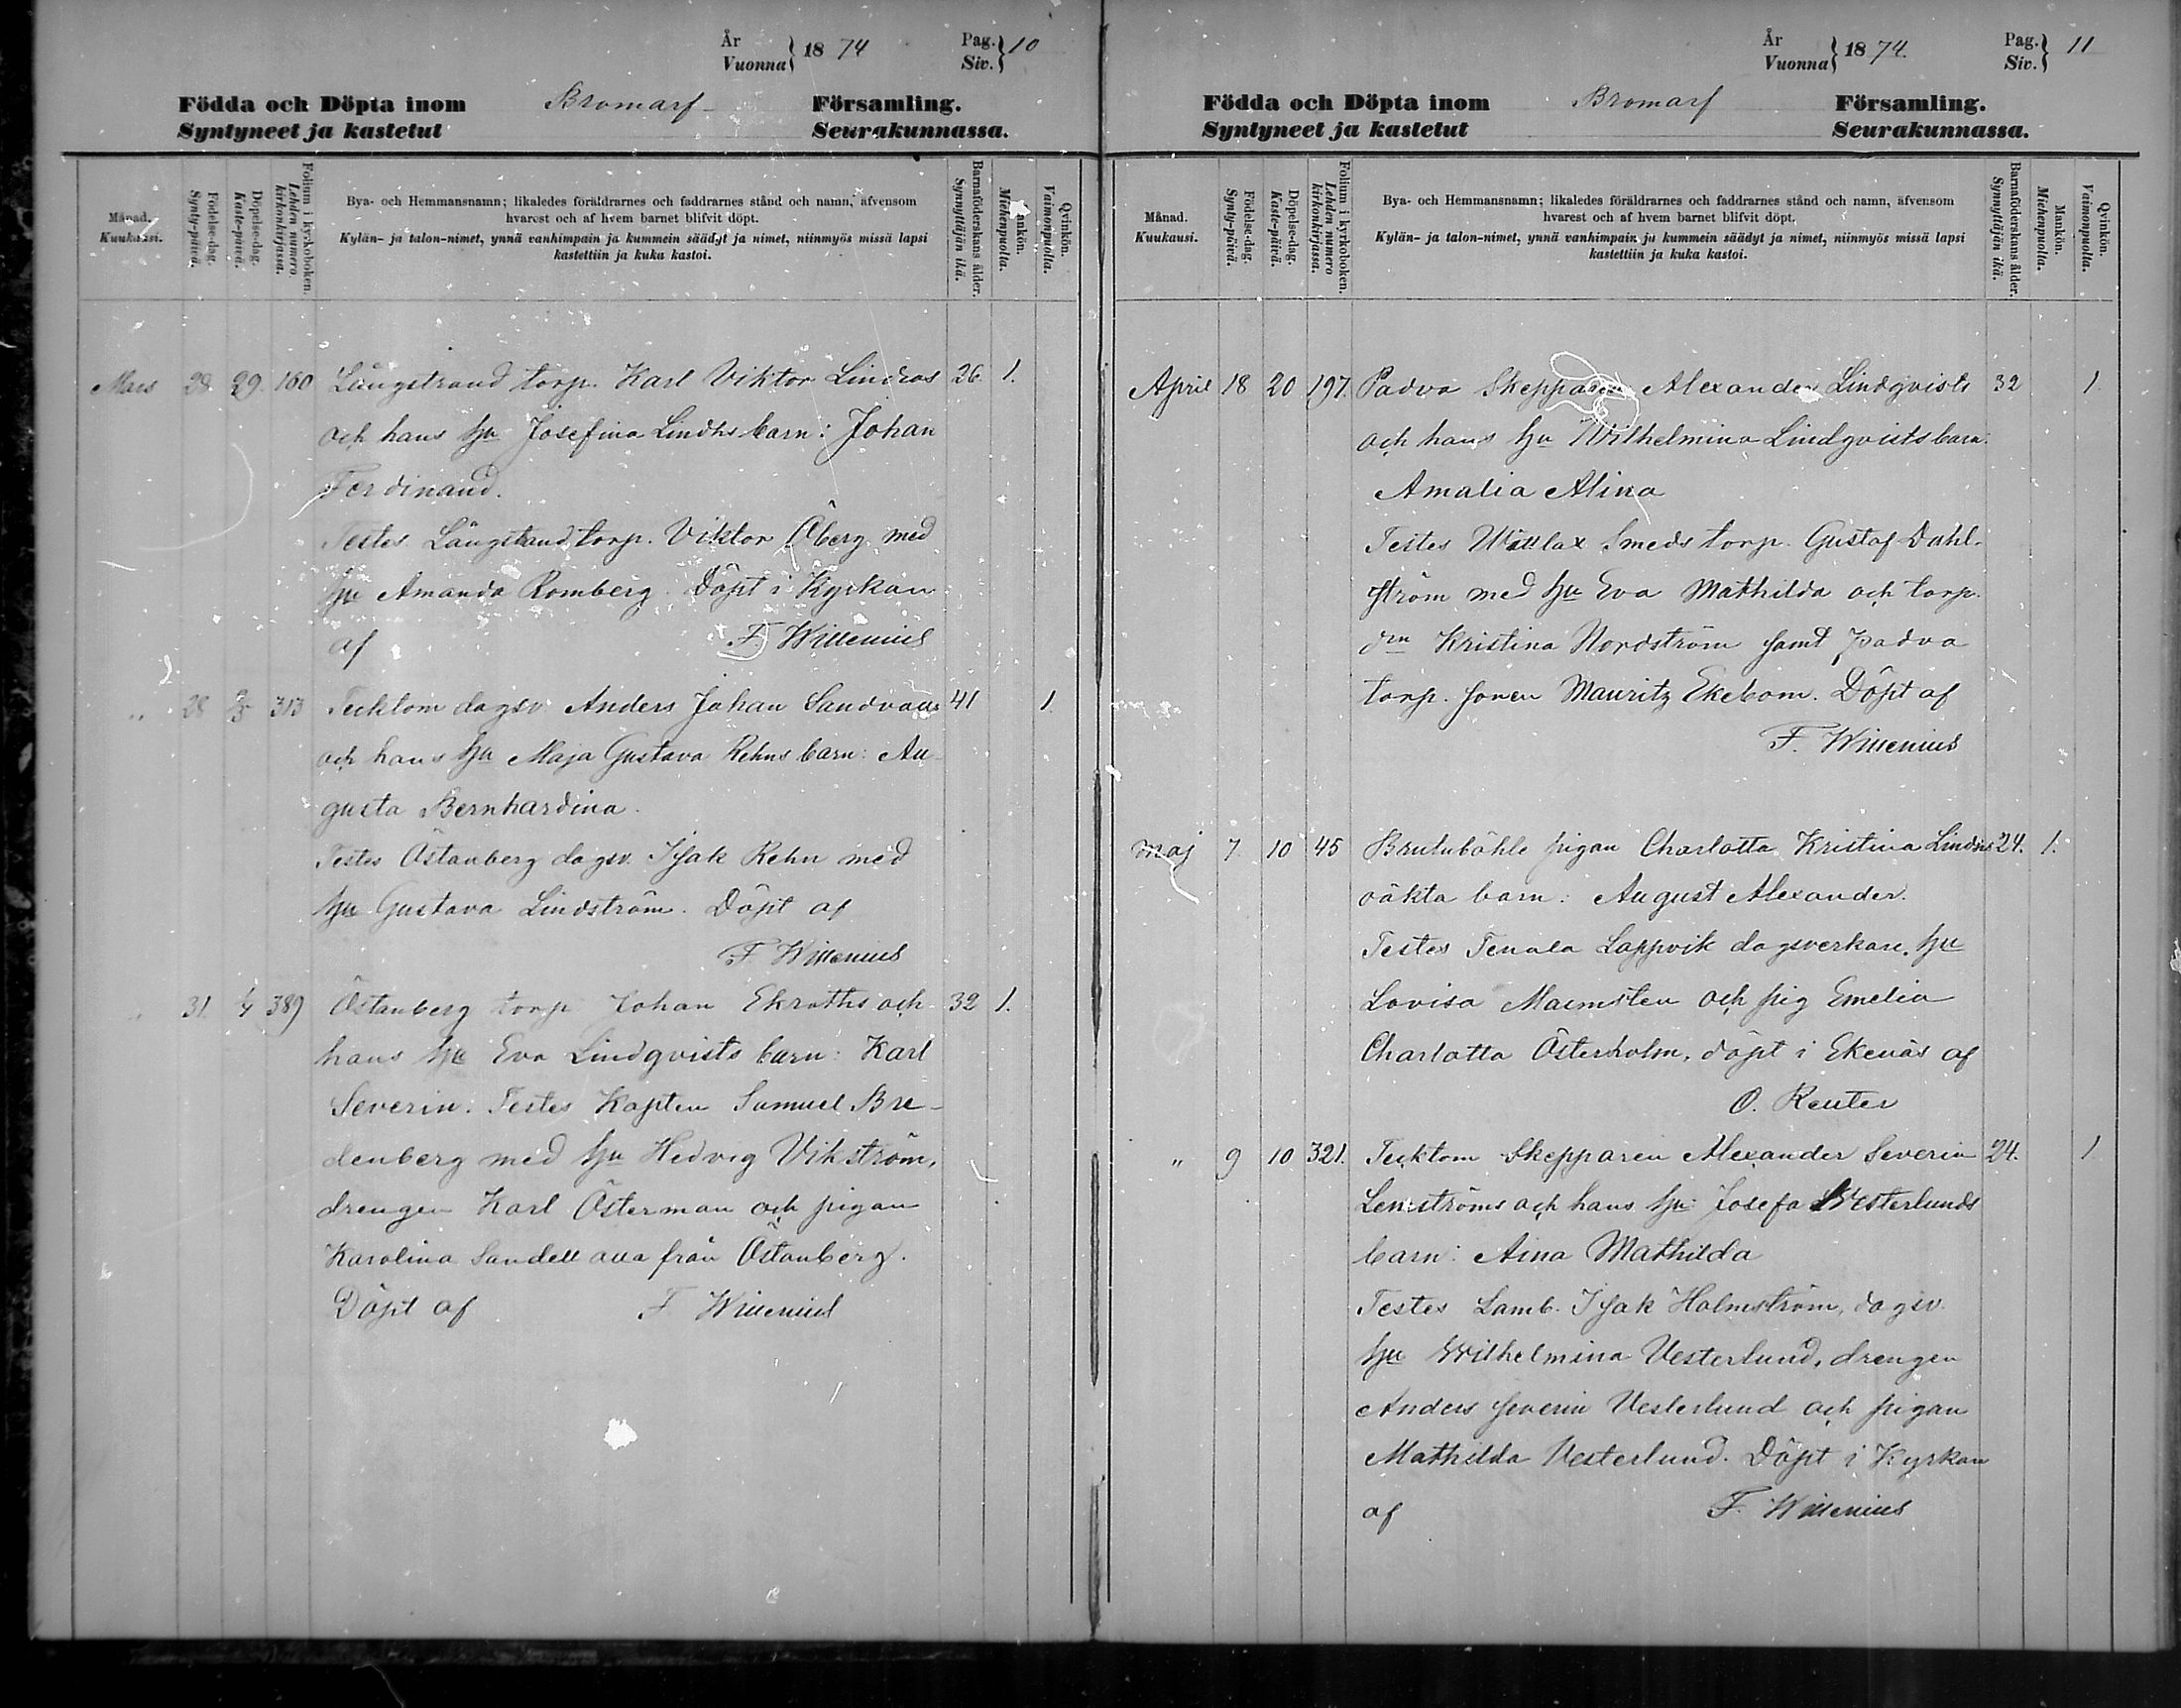 År
Vuonna } 18 74
Pag.
Siv. } 10
Födda och Döpta inom Bromarf Församling.
Syntyneet ja kastetut Seurakunnassa.
Månad.
Kuukausi.
Födelse-dag.
Synty-päivä.
Döpelse-dag.
Kaste-päivä.
Folium i kyrkoboken.
Lehden numero kirkonkirjassa.
Bya- och Hemmansnamn; likaledes föräldrarnes och faddrarnes stånd och namn, äfvensom
hvarest och af hvem barnet blifvit döpt.
Kylän- ja talon-nimet, ynnä vanhimpain ja kummein säädyt ja nimet, niinmyös missä lapsi
kastettiin ja kuka kastoi.
Barnaföderskans ålder.
Synnyttäjän ikä.
Mankön.
Miehenpuolia.
Qvinkön.
Vaimonpuolia.
Mars 28. 29. 160 Långstrand torp. Karl Viktor Lindros 26. 1.
och hans hu Josefina Lindhs barn: Johan
Ferdinand.
Testes Långstrand torp. Viktor Öberg med
hu Amanda Romberg. Döpt i Kyrkan
af F. Willenius
" 28 313 Tecktom dagsv. Anders Johan Sandvalls 41 1
och hans hu Maja Gustava Rehns barn: Au-
gusta Bernhardina.
Testes Östanberg dagsv. Isak Rehn med
hu Gustava Lindström. Döpt af
F Willenius
" 31. 389 Östanberg torp Johan Ekroths och 32 1.
hans hu Eva Lindqvists barn: Karl
Severin. Testes Kapten Samuel Bre-
denberg med hu Hedvig Vikström,
drengen Karl Österman och pigan
Karolina Sandell alla från Östanberg.
Döpt af F Willenius
År
Vuonna } 18 74.
Pag.
Siv. } 11
Födda och Döpta inom Bromarf Församling.
Syntyneet ja kastetut Seurakunnassa.
Månad.
Kuukausi.
Födelse-dag.
Synty-päivä.
Döpelse-dag.
Kaste-päivä.
Folium i kyrkoboken.
Lehden numero kirkonkirjassa.
Bya- och Hemmansnamn; likaledes föräldrarnes och faddrarnes stånd och namn, äfvensom
hvarest och af hvem barnet blifvit döpt.
Kylän- ja talon-nimet, ynnä vanhimpain ja kummein säädyt ja nimet, niinmyös missä lapsi
kastettiin ja kuka kastoi.
Barnaföderskans ålder.
Synnyttäjän ikä.
Mankön.
Miehenpuolia.
Qvinkön.
Vaimonpuolia.
April 18 20 197. Padva Skepparen Alexander Lindqvists 32 1
och hans hu Wilhelmina Lindqvists barn:
Amalia Alina
Testes Smeds torp. Gustaf Dahl-
ström med hu Eva Mathilda och torp.
dm Kristina Nordström samt padva
torp. sonen Mauritz Ekebom. Döpt af
F. Willenius
maj 7 10 45 Brulubåhle pigan Charlotta Kristina Linders 24. 1.
oäkta barn: August Alexander.
Testes Tenala Lappvik dagsverkare hu
Lovisa Malmsten och pig Emelia
Charlotta Österholm, döpt i Ekenäs af
O. Reuter
" 9 10 321. Tecktom Skepparen Alexander Severin 24. 1
Lenströms och hans hu Josefa Westerlunds
barn: Aina Mathilda
Testes Lamb. Isak Holmström, dagsv.
hu Wilhelmina Vesterlund, drengen
Anders Severin Vesterlund och pigan
Mathilda Vesterlund. Döpt i Kyrkan
af F. Willenius